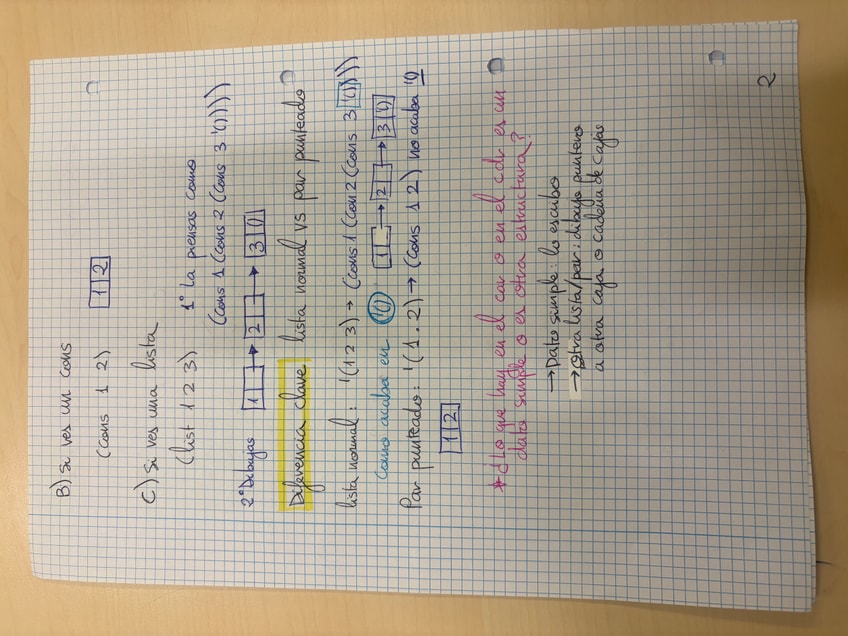 B) Si ves un cons
(cons 1 2) 1 2
C) Si ves una lista
(list 1 2 3) 1º La piensas como
(cons 1 (cons 2 (cons 3 '())))
2º Dibujas 1 → 2 → 3 ()
Diferencia clave lista normal vs par punteado
lista normal: '(1 2 3) → (cons 1 (cons 2 (cons 3 '())))
como acaba en '() 1 → 2 → 3 ()
Par punteado: '(1 . 2) → (cons 1 2) no acaba '()
1 2
* ¿Lo que hay en el car o en el cdr es un
dato simple o es otra estructura?
→ Dato simple: lo escribo
→ Otra lista/par: dibujo puntero
a otra caja o cadena de cajas
2